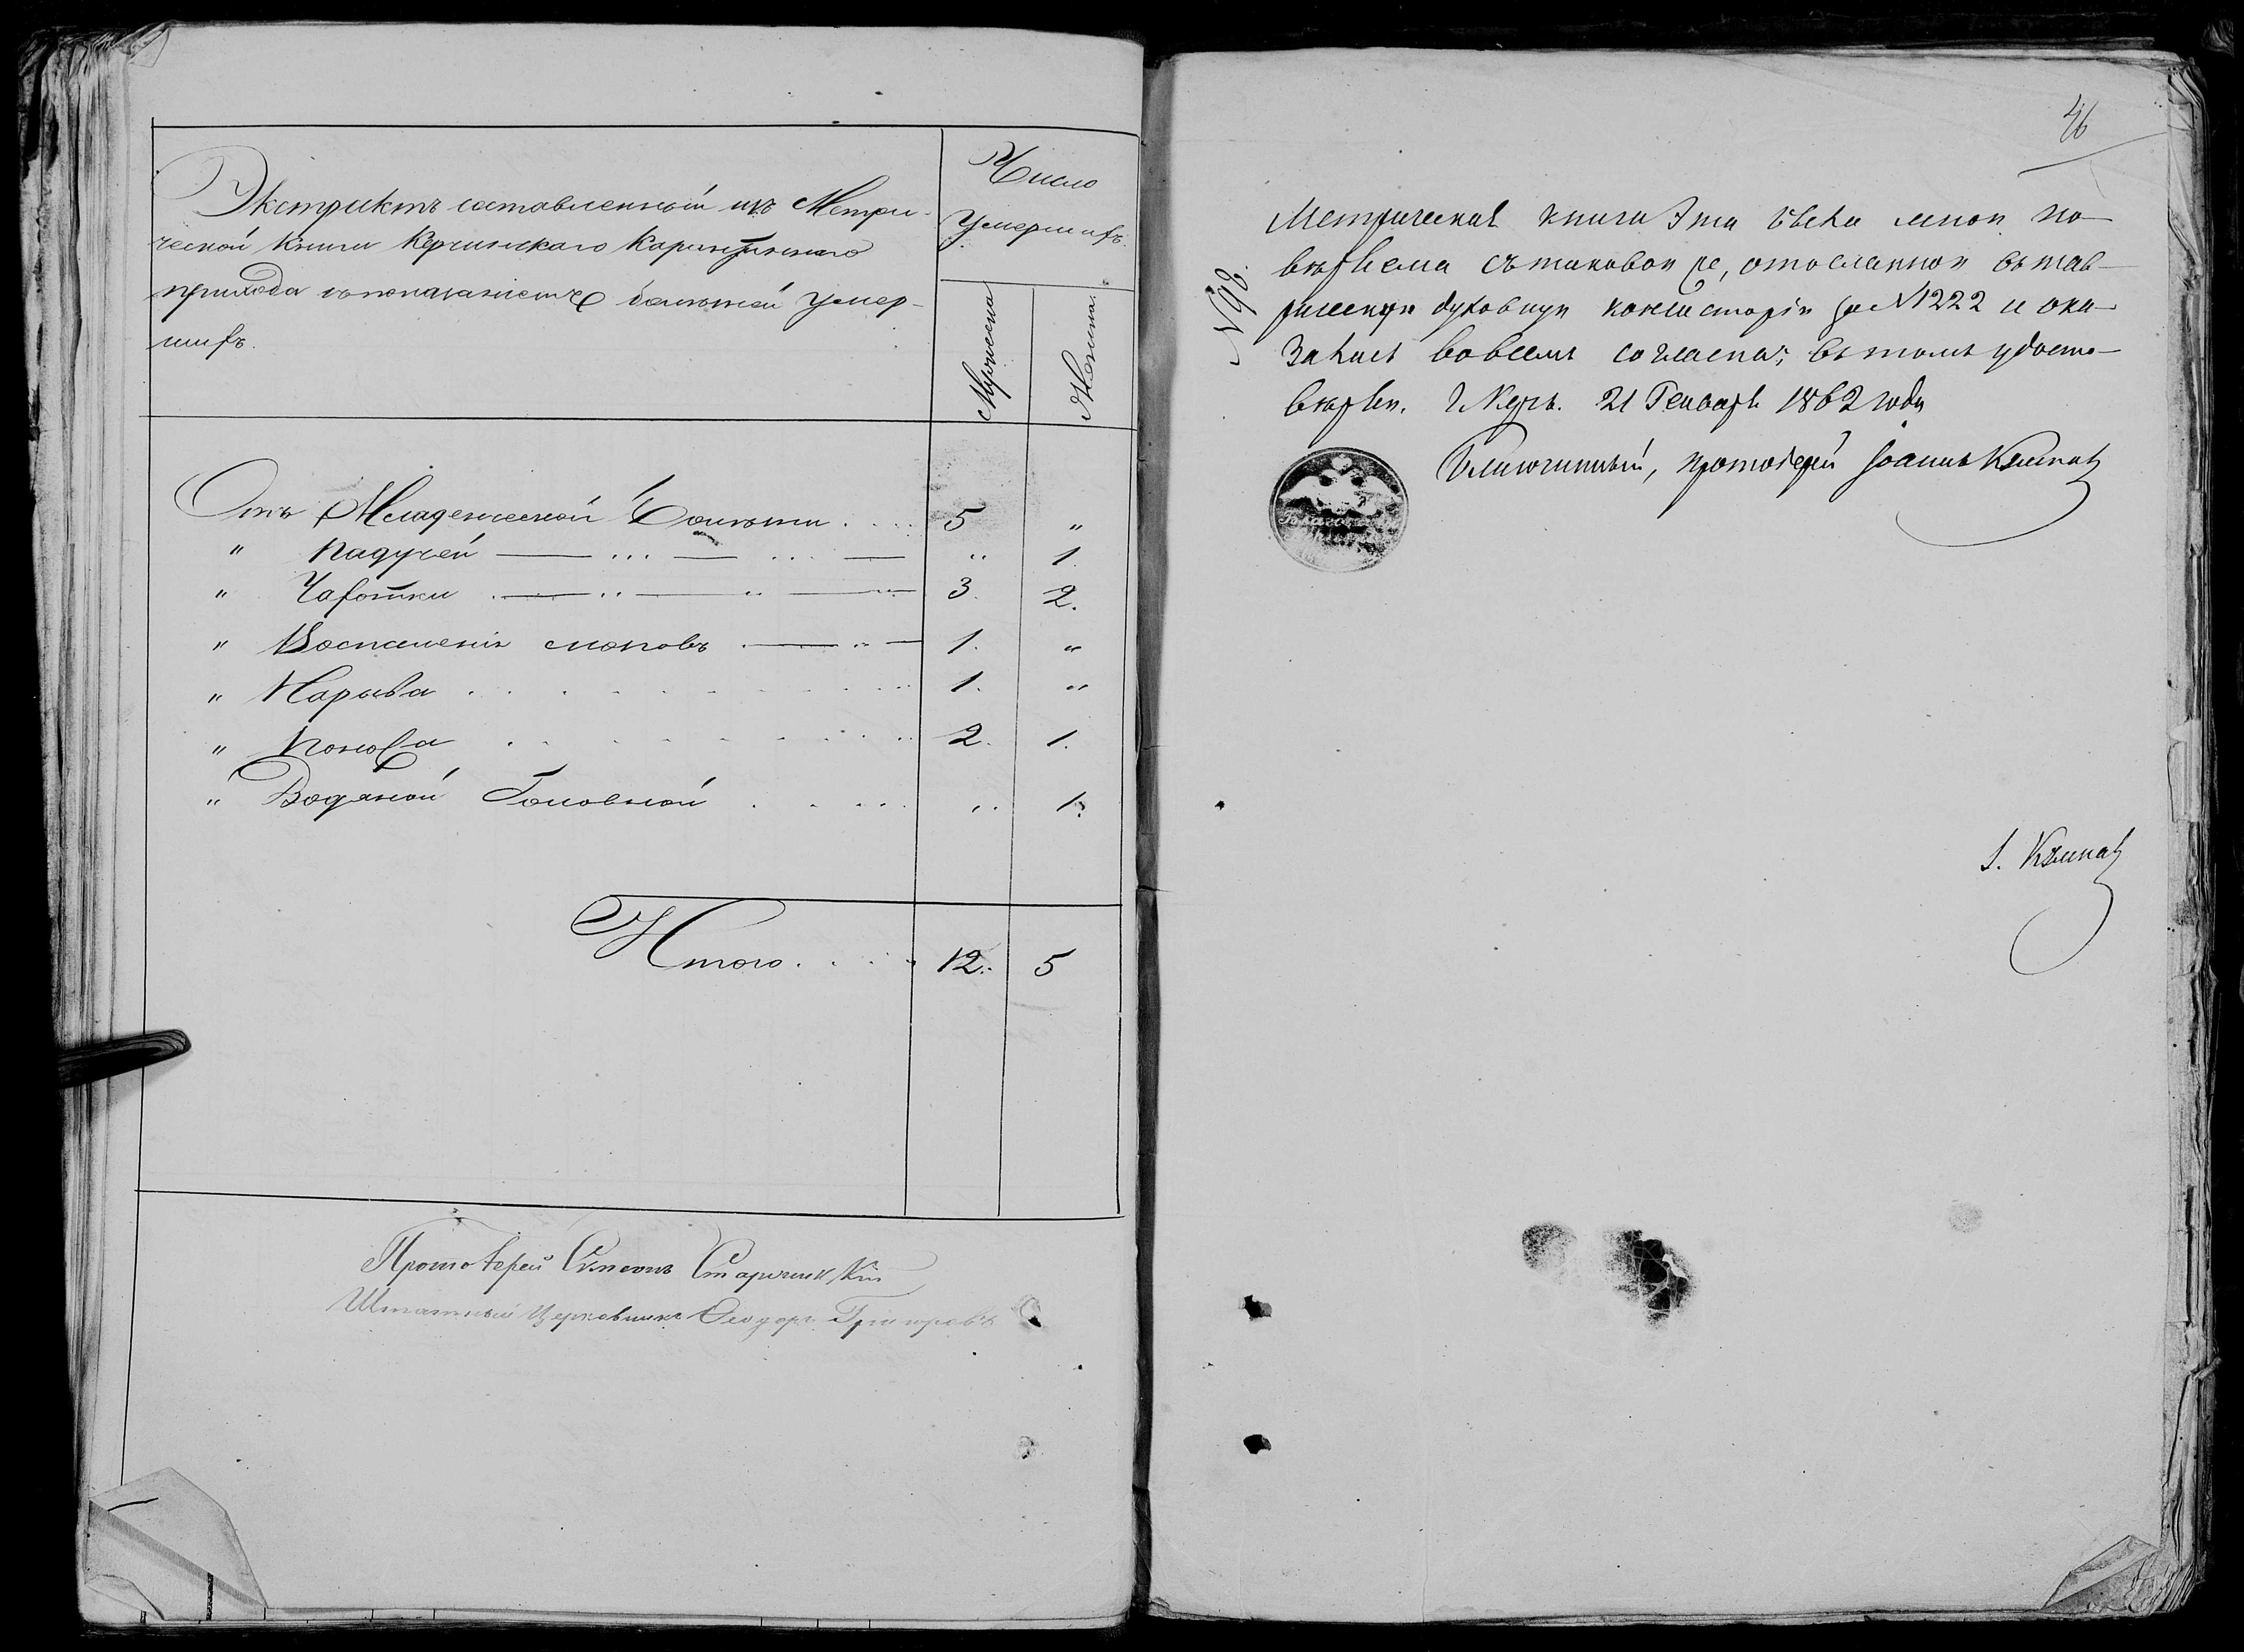 Экстрактъ составленный изъ Метри-
ческой Книги Керчинскаго Карантиннаго
прихода съ показаніемъ болѣзней Умер-
шихъ.
Число
Умершихъ.
Мужеска
Женска
Отъ Младенческой Болѣзни 5 "
" Падучей " 1.
" Чахотки 3. 2.
" Воспаленія 1. "
" Нарыва 1. "
" Поноса 2. 1.
" Водяной Головной " 1.
Итого 12. 5
Протоіерей Симеонъ
Штатный Церковникъ Ѳеодоръ Григоровъ
46
N 98.
Метрическая книга эта была мною по-
вѣряема съ таковою же, отосланною въ Тав-
рическую духовную консисторію за N 1222 и ока-
залась во всемъ согласна; въ томъ удосто-
вѣряю. г. Керчь. 21 Генваря 1862 года
Благочинный, протоіерей Іоаннъ